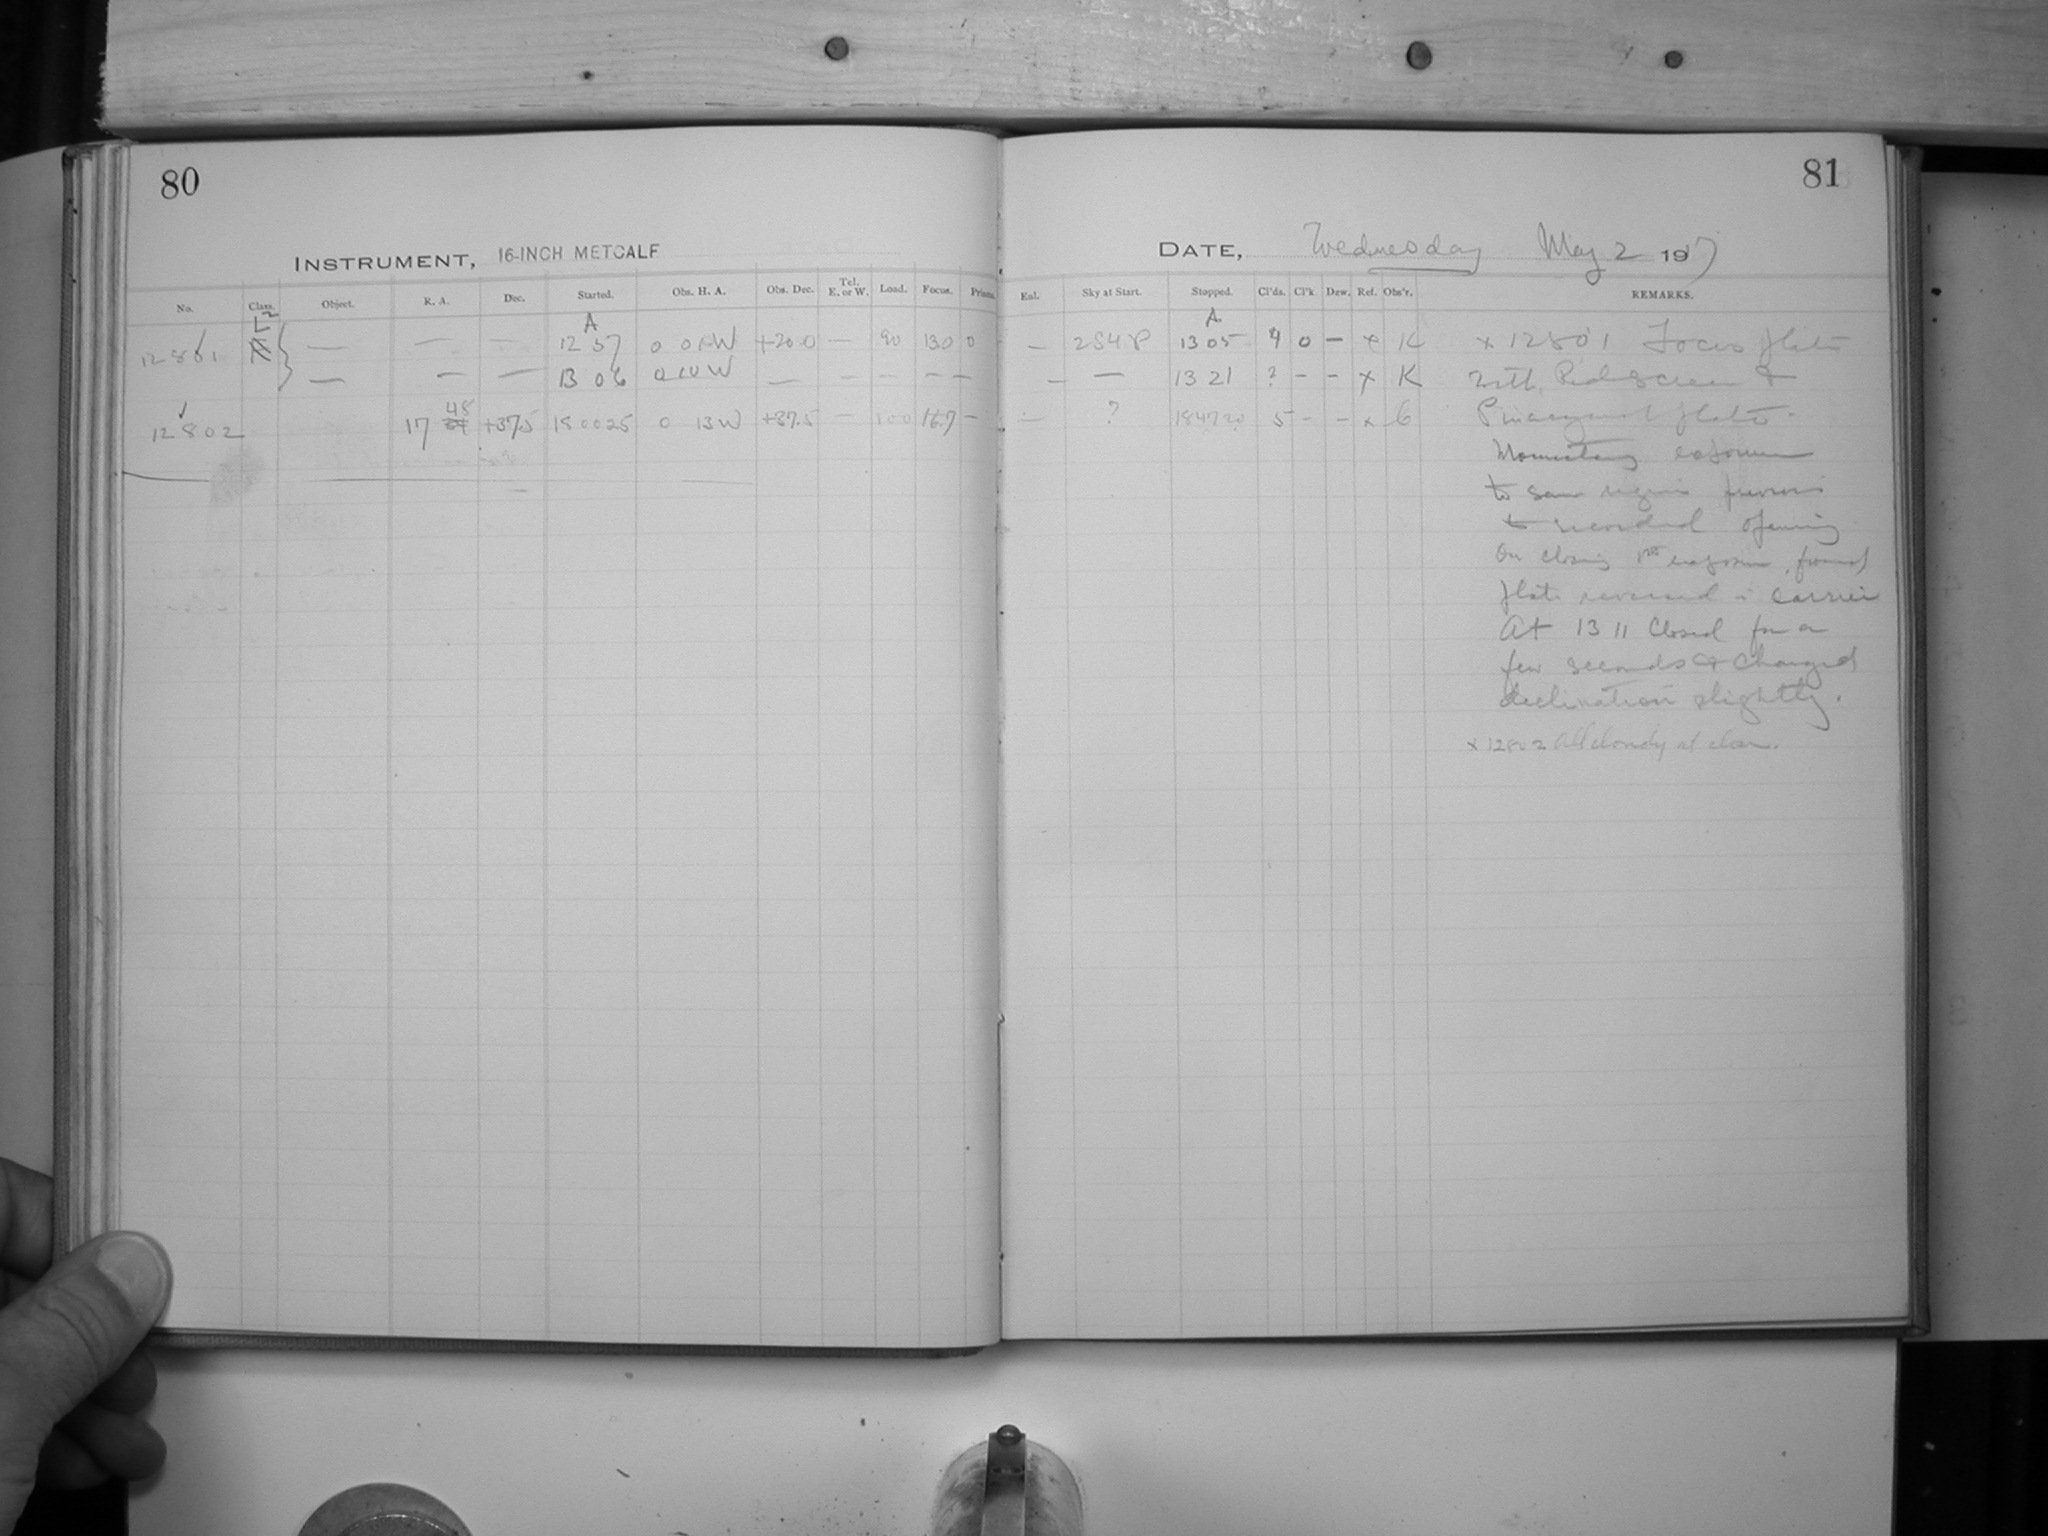 80
INSTRUMENT, 16-INCH METCALF
No. Class. Object. R. A. Dec. Started. Obs. H. A. Obs. Dec. Tel. E. or W. Load. Focus. Prisms.
L A
12801 — — — 12 57 +20.0 — 90 13.0 0
— — — 13 06 0 10 W — — — — —
12802 17 48 +37.5 18 00 25 0 13 W +37.5 — 100 16.7 —
81
DATE, Wednesday May 2 1917
Eal. Sky at Start. Stopped. Cl'ds. Cl'k Dew. Ref. Obs'r. REMARKS.
A
— 13 05 9 0 — x K x 12801 Focus plate
— — 13 21 ? — — x K with Red screen &
— ? 18 47 20 5 — — x plate.
Momentary exposure
to same region previous
to recorded opening
On closing 1st exposure, found
plate reversed in carrier
At 13 11 Closed for a
few seconds & changed
declination slightly.
x 12802 All cloudy at close.